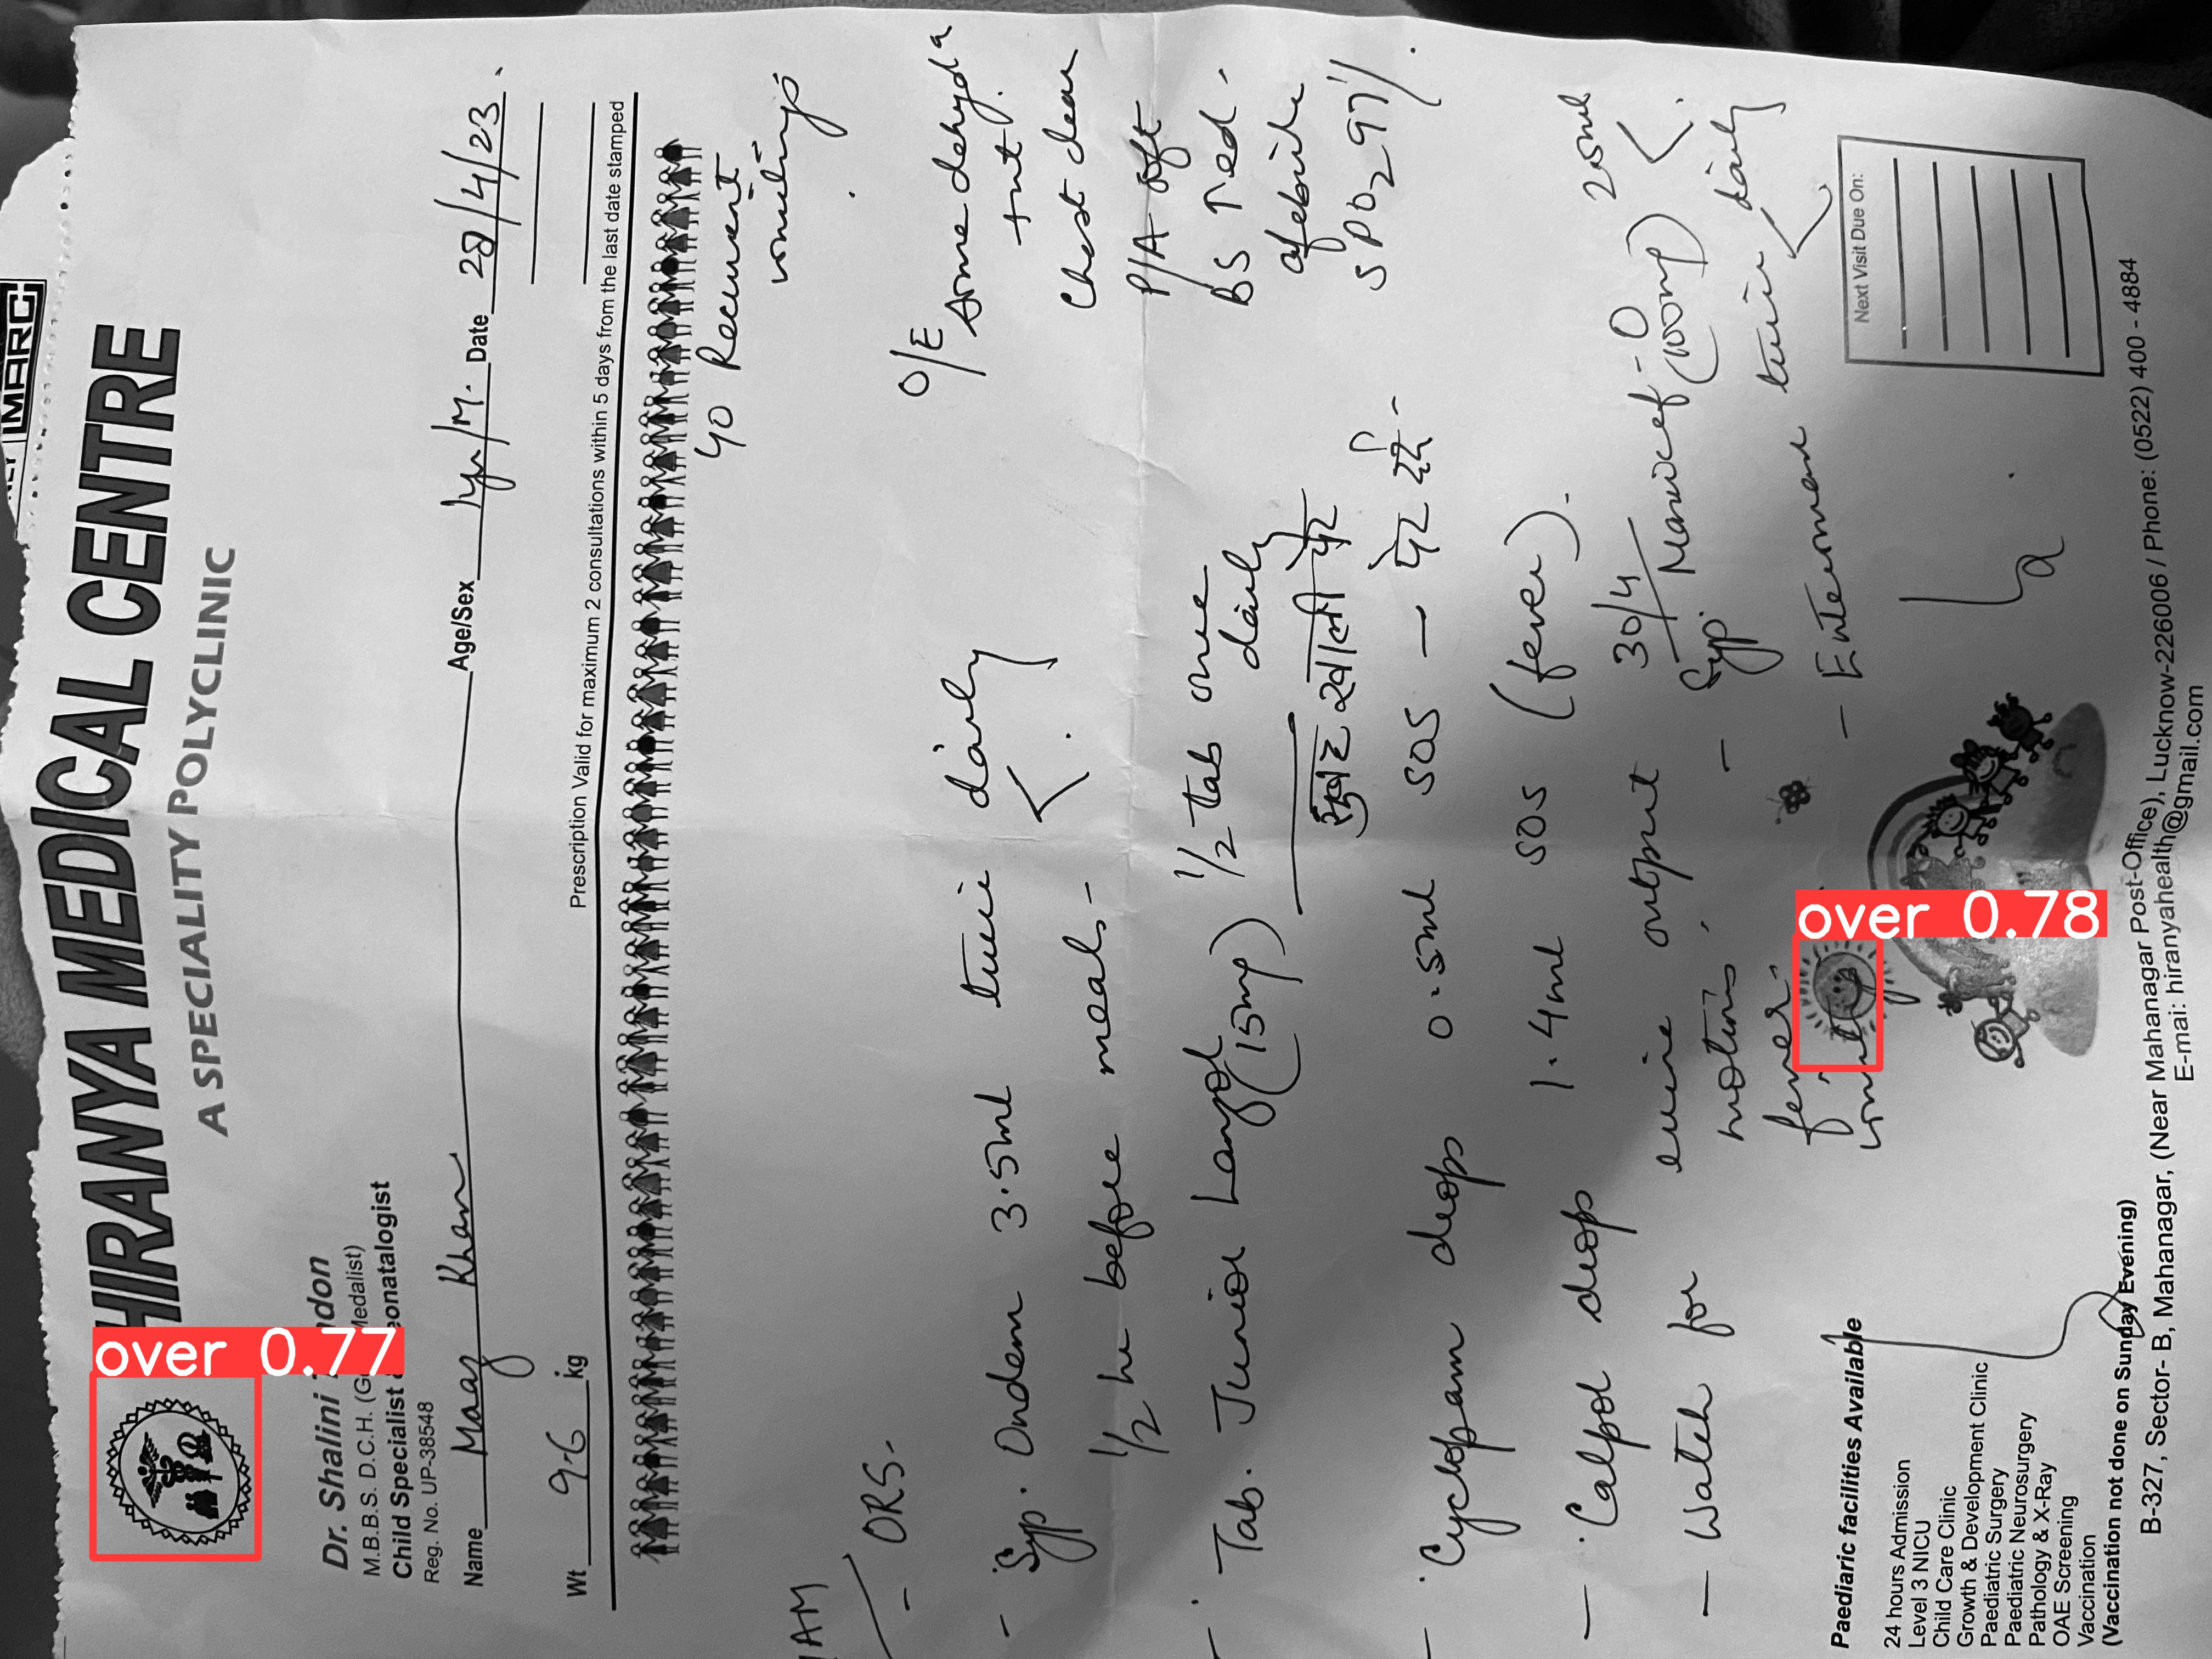 MARC
HIRANYA MEDICAL CENTRE
A SPECIALITY POLYCLINIC
over 0.77
Dr. Shalini
M.B.B.S. D.C.H. (Medalist)
Child Specialist
Reg. No. UP-38548
Name Maaz Khan Age/Sex 1yr/M. Date 28/4/23.
Wt 9.6 kg
Prescription Valid for maximum 2 consultations within 5 days from the last date stamped
Recurrent
vomitings
O/E
Some dehydn
Chest clear
P/A soft
BS
afebrile
SPO2 97%.
AM
- ORS.
- Syp. Ondem 3.5ml twice daily
1/2 hr before meals -
- Tab. Junior Lanzol 1/2 tab once daily
(15mg)
सुबह खाली पेट
- Cyclopam drops 0.5ml SOS - पेट दर्द -
- Calpol drops 1.4ml SOS (fever).
- Watch for urine output
motions,
fever,
30/4
- Syp. - O
(100mg)
twice daily
Next Visit Due On:
over 0.78
Paediaric facilities Available
24 hours Admission
Level 3 NICU
Child Care Clinic
Growth & Development Clinic
Paediatric Surgery
Paediatric Neurosurgery
Pathology & X-Ray
OAE Screening
Vaccination
(Vaccination not done on Sunday Evening)
B-327, Sector- B, Mahanagar, (Near Mahanagar Post-Office), Lucknow-226006 / Phone: (0522) 400 - 4884
E-mai: hiranyahealth@gmail.com